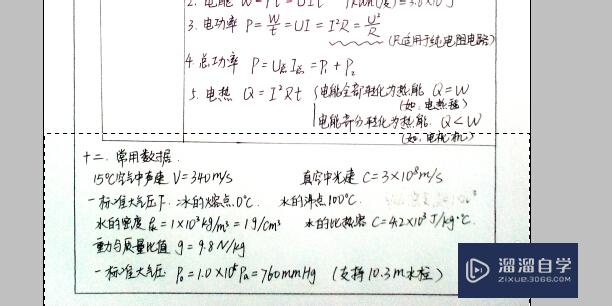 2. 电能 W=Pt=UIt 1kwh(度)=3.6×10⁶J
3. 电功率 P=W/t=UI=I²R=U²/R
(只适用于纯电阻电路)
4. 总功率 P=U总I总=P₁+P₂
5. 电热 Q=I²Rt {电能全部转化为热能 Q=W
(如:电热毯)
电能部分转化为热能 Q<W
(如:电机机)
十二、常用数据.
15℃空气中声速 V=340m/s 真空中光速 C=3×10⁸m/s
一标准大气压下:冰的熔点0℃. 水的沸点100℃.
水的密度 ρ水=1×10³kg/m³=1g/cm³ 水的比热容 C=4.2×10³J/kg·℃
重力与质量比值 g=9.8N/kg
一标准大气压 P₀=1.0×10⁵Pa=760mmHg (支持10.3m水柱)
溜溜自学
ZIXUE.3D66.COM